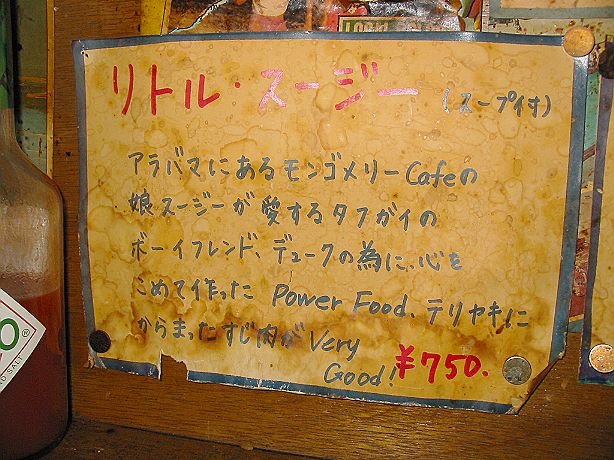 リトル・スージー (スープ付)
アラバマにあるモンゴメリーCafeの
娘スージーが愛するタフガイの
ボーイフレンド、デュークの為に、心を
こめて作った Power Food、テリヤキに
からまったすじ肉が Very
Good! ¥750.
O®